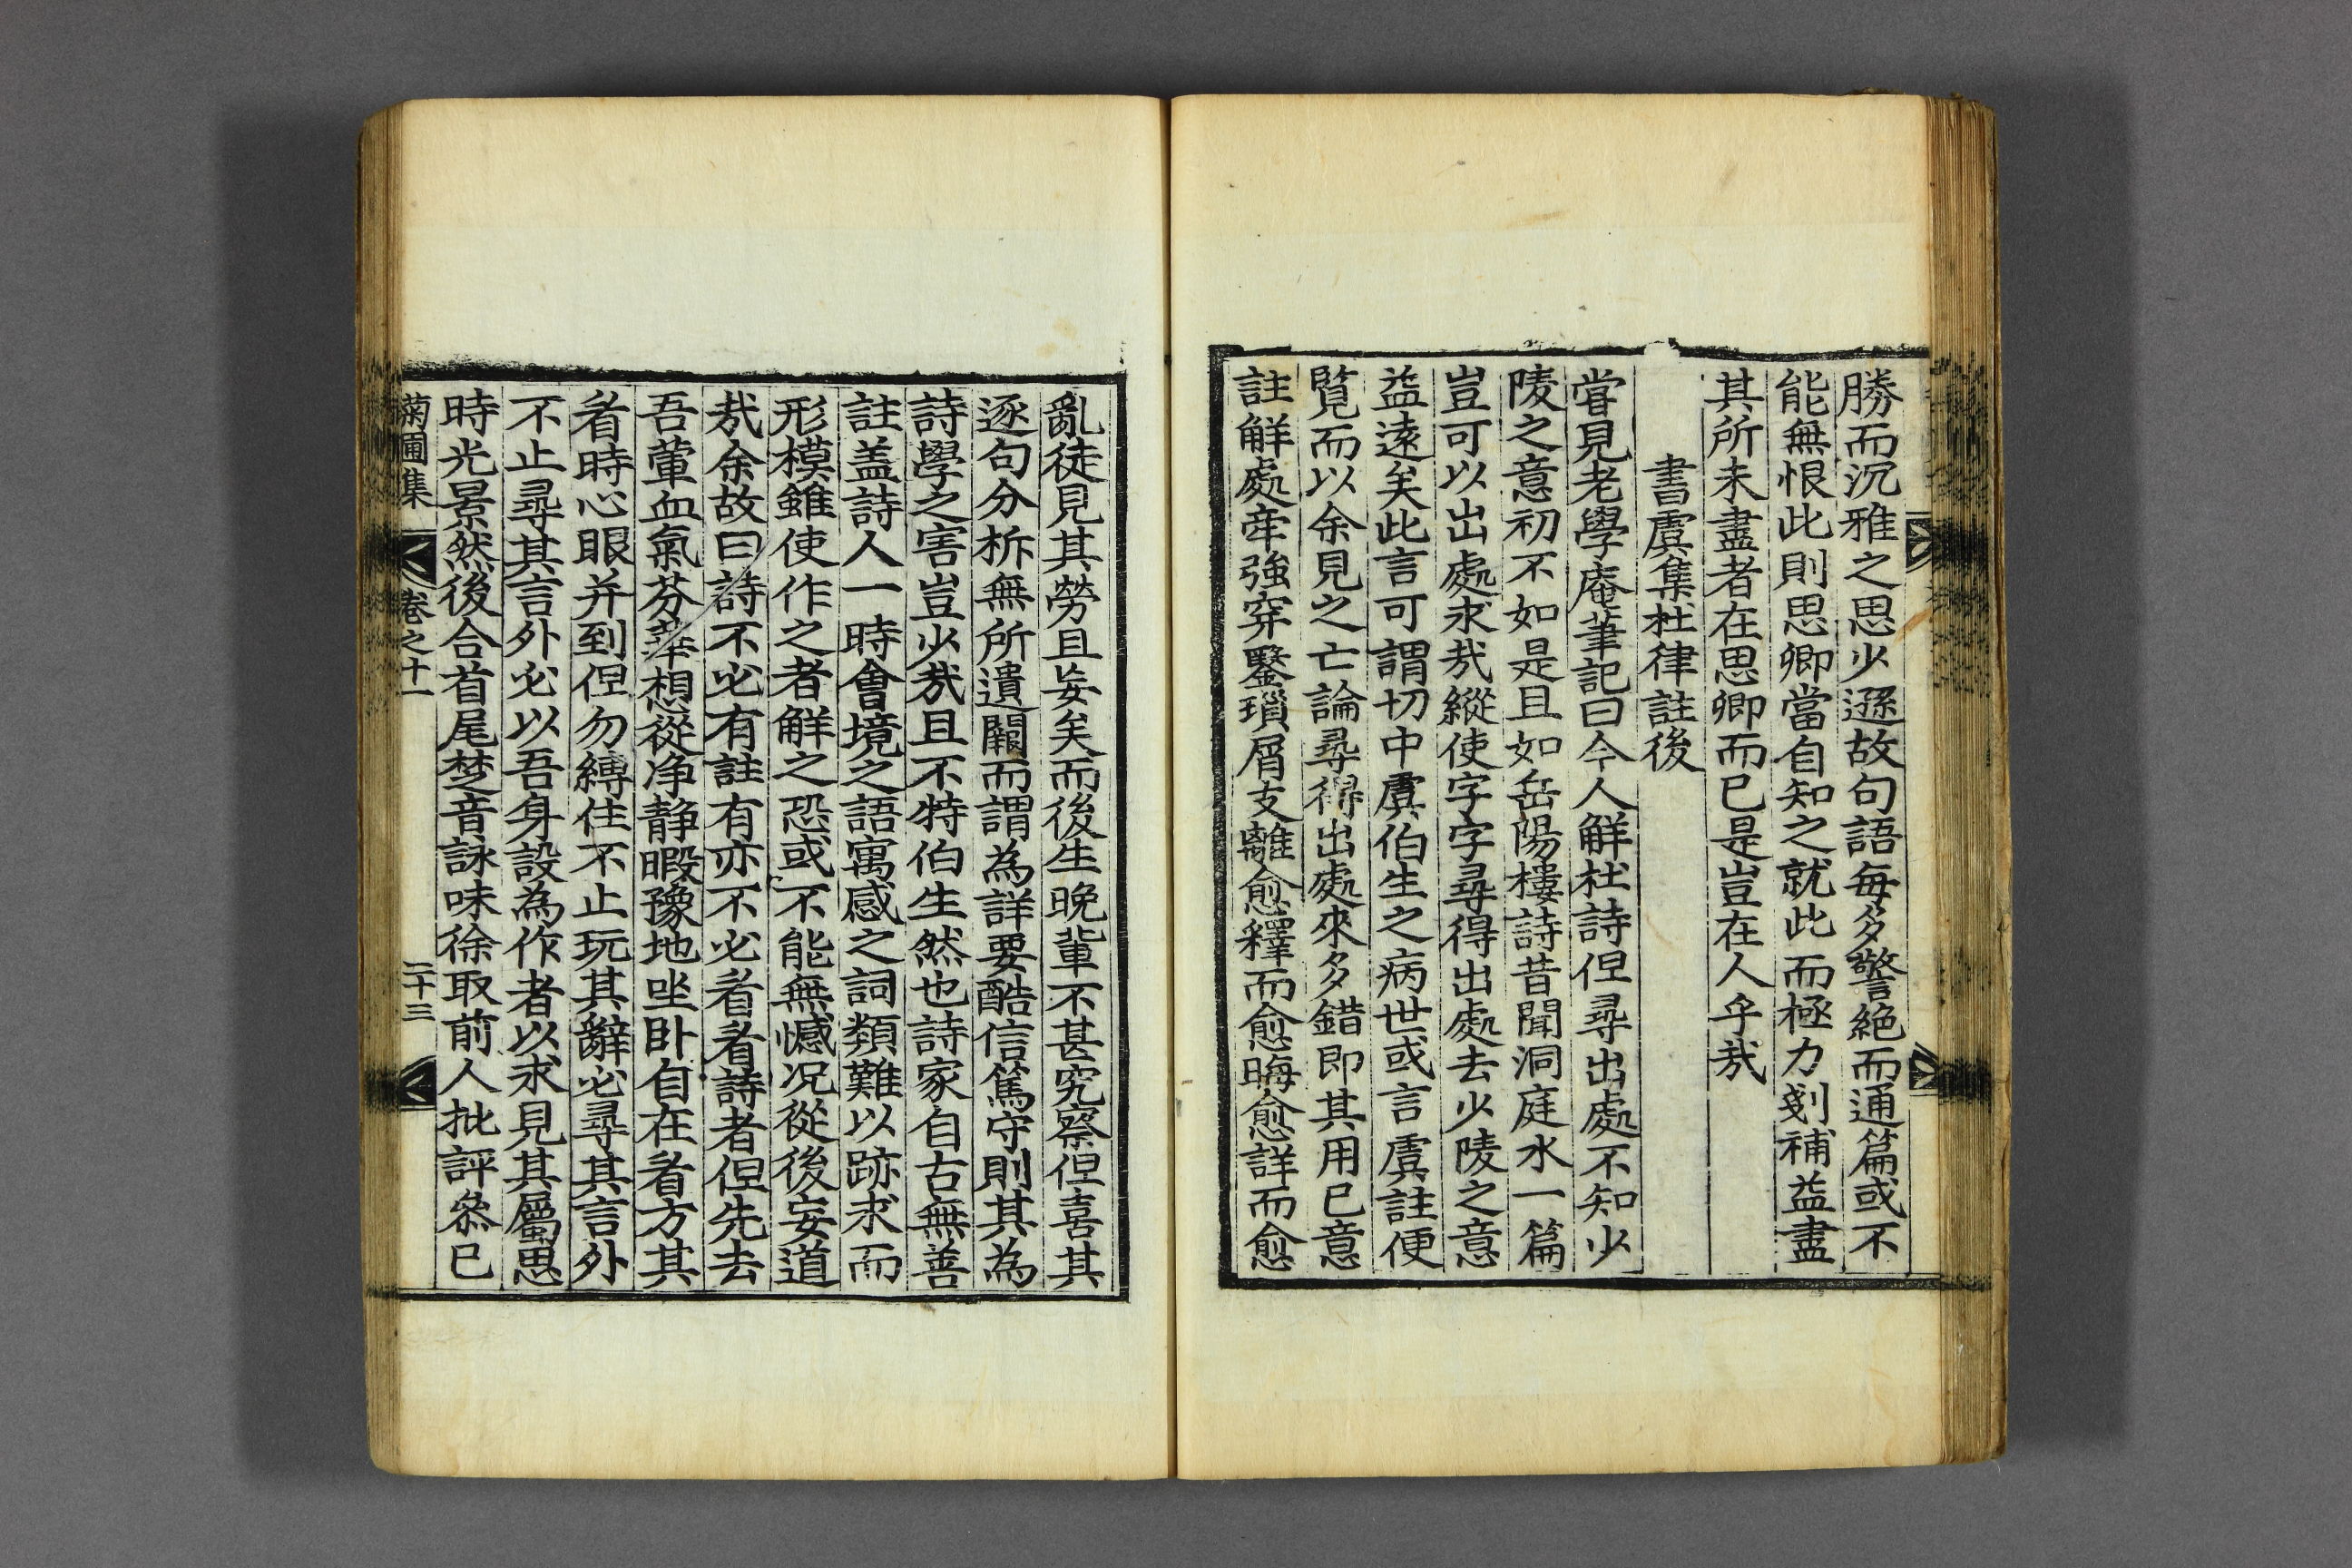 勝而沉雅之思少遜故句語每多警絶而通篇或不
能無恨此則思卿當自知之就此而極力剗補益盡
其所未盡者在思卿而已是豈在人乎㦲
書虞集杜律註後
甞見老學庵筆記曰今人觧杜詩但尋出處不知少
陵之意初不如是且如岳陽樓詩昔聞洞庭水一篇
豈可以出處求㦲縱使字字尋得出處去少陵之意
益遠矣此言可謂切中虞伯生之病世或言虞註便
覧而以余見之亡論尋得出處來多錯即其用已意
註觧處牽強穿鑿瑣屑支離愈釋而愈晦愈詳而愈
亂徒見其勞且妄矣而後生晚輩不甚究察但喜其
逐句分析無所遺闕而謂為詳要酷信篤守則其為
詩學之害豈少㦲且不特伯生然也詩家自古無善
註盖詩人一時會境之語寓感之詞類難以跡求而
形模雖使作之者觧之恐或不能無憾况從後妄道
㦲余故曰詩不必有註有亦不必看看詩者但先去
吾葷血氣芬華想從净静暇豫地坐卧自在看方其
看時心眼并到但勿縛住不止玩其辭必尋其言外
不止尋其言外必以吾身設為作者以求見其屬思
時光景然後合首尾楚音詠味徐取前人批評叅已
菊圃集 卷之十一 二十三